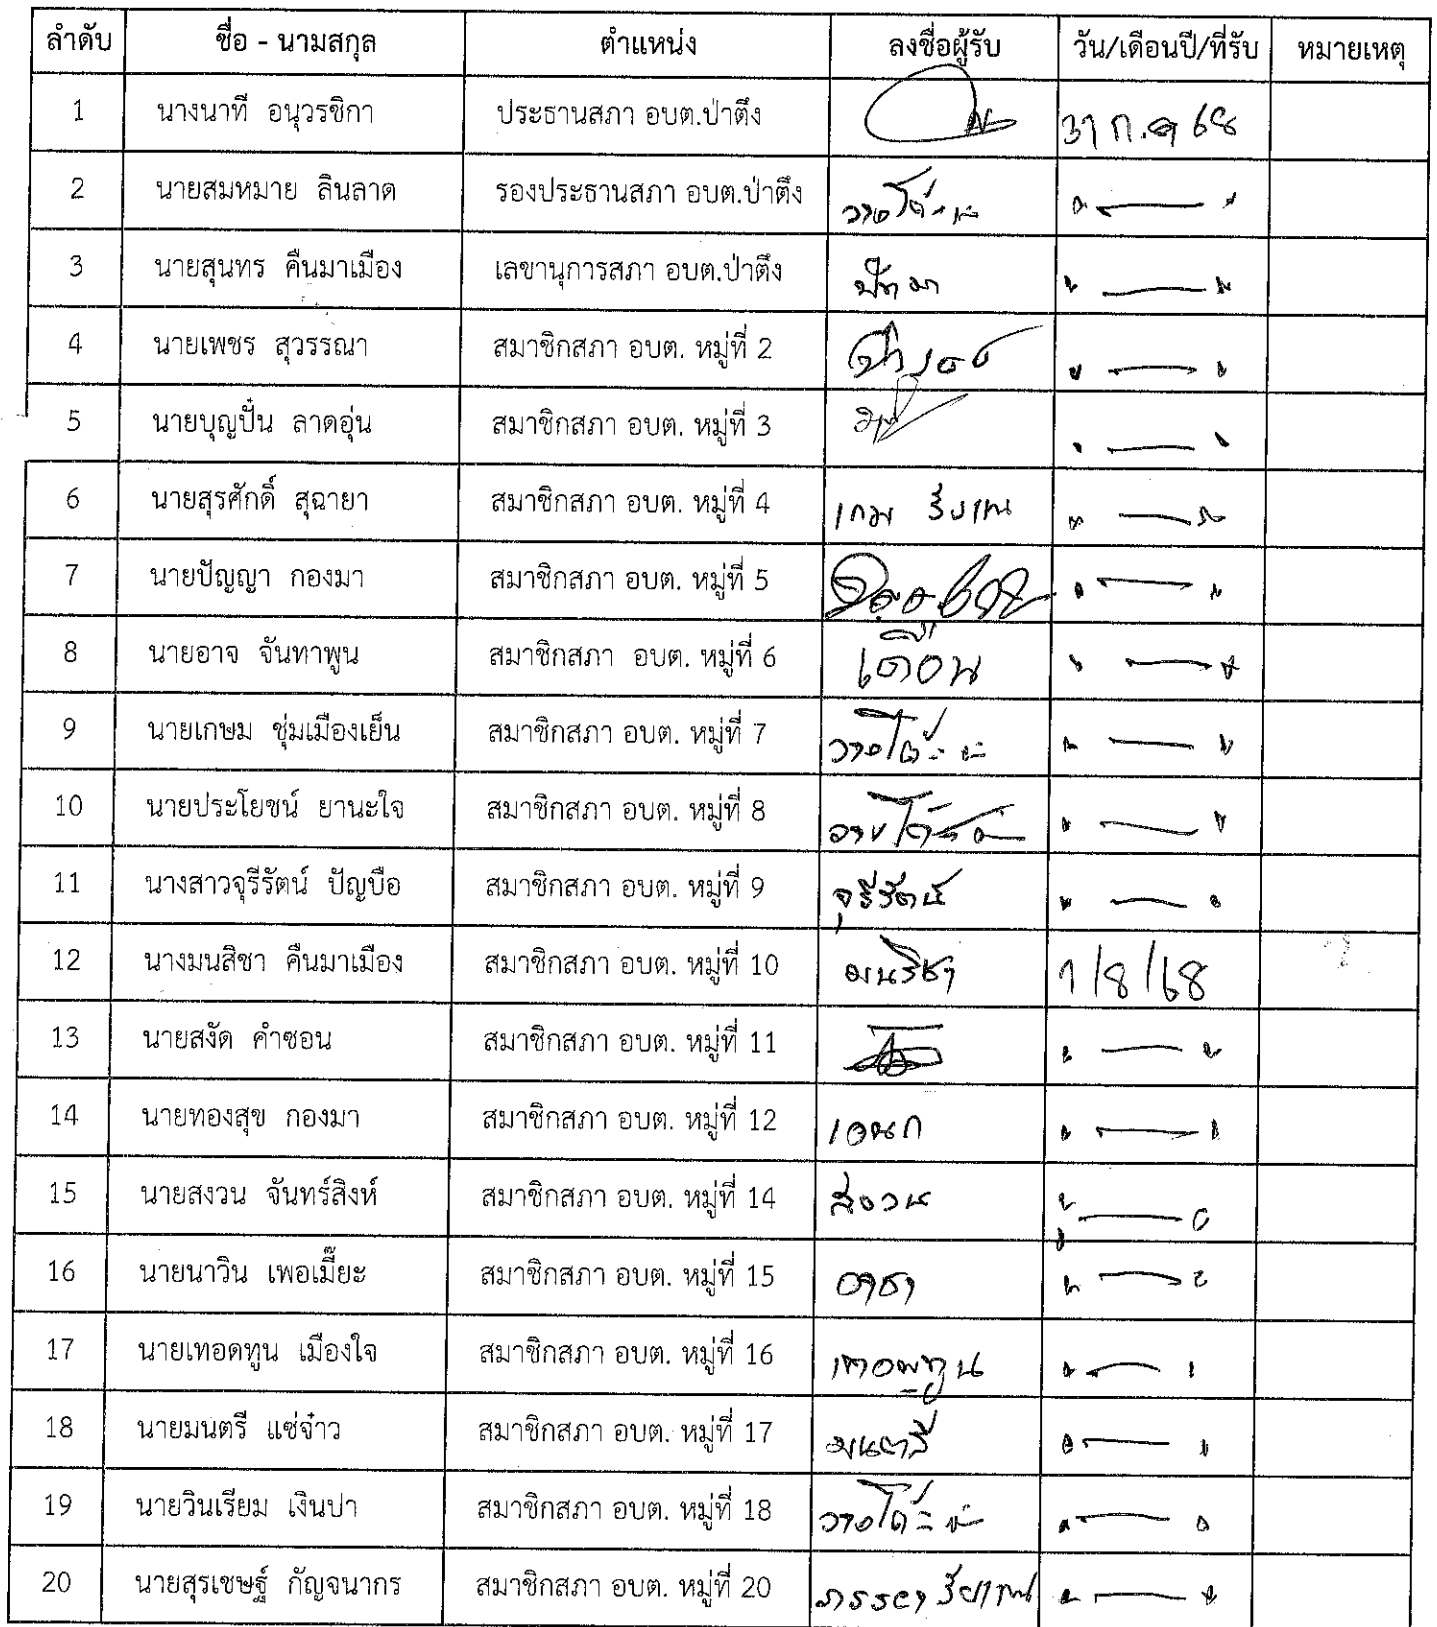 ลำดับ ชื่อ - นามสกุล ตำแหน่ง ลงชื่อผู้รับ วัน/เดือนปี/ที่รับ หมายเหตุ
1 นางนาที อนุวรชิกา ประธานสภา อบต.ป่าตึง 31 ก.ค 68
2 นายสมหมาย ลินลาด รองประธานสภา อบต.ป่าตึง วางโต๊ะ
3 นายสุนทร คืนมาเมือง เลขานุการสภา อบต.ป่าตึง
4 นายเพชร สุวรรณา สมาชิกสภา อบต. หมู่ที่ 2
5 นายบุญปั๋น ลาดอุ่น สมาชิกสภา อบต. หมู่ที่ 3
6 นายสุรศักดิ์ สุฉายา สมาชิกสภา อบต. หมู่ที่ 4
7 นายปัญญา กองมา สมาชิกสภา อบต. หมู่ที่ 5
8 นายอาจ จันทาพูน สมาชิกสภา อบต. หมู่ที่ 6 เดือน
9 นายเกษม ชุ่มเมืองเย็น สมาชิกสภา อบต. หมู่ที่ 7 วางโต๊ะ
10 นายประโยชน์ ยานะใจ สมาชิกสภา อบต. หมู่ที่ 8 วางโต๊ะ
11 นางสาวจุรีรัตน์ ปัญบือ สมาชิกสภา อบต. หมู่ที่ 9 จุรีรัตน์
12 นางมนสิชา คืนมาเมือง สมาชิกสภา อบต. หมู่ที่ 10 มนสิชา 1/8/68
13 นายสงัด คำซอน สมาชิกสภา อบต. หมู่ที่ 11
14 นายทองสุข กองมา สมาชิกสภา อบต. หมู่ที่ 12 เอนก
15 นายสงวน จันทร์สิงห์ สมาชิกสภา อบต. หมู่ที่ 14 สงวน
16 นายนาวิน เพอเมี๊ยะ สมาชิกสภา อบต. หมู่ที่ 15 อาชา
17 นายเทอดทูน เมืองใจ สมาชิกสภา อบต. หมู่ที่ 16 เทอดทูน
18 นายมนตรี แซ่จ๋าว สมาชิกสภา อบต. หมู่ที่ 17 มนตรี
19 นายวินเรียม เงินปา สมาชิกสภา อบต. หมู่ที่ 18 วางโต๊ะ
20 นายสุรเชษฐ์ กัญจนากร สมาชิกสภา อบต. หมู่ที่ 20 ภรรยา รับแทน